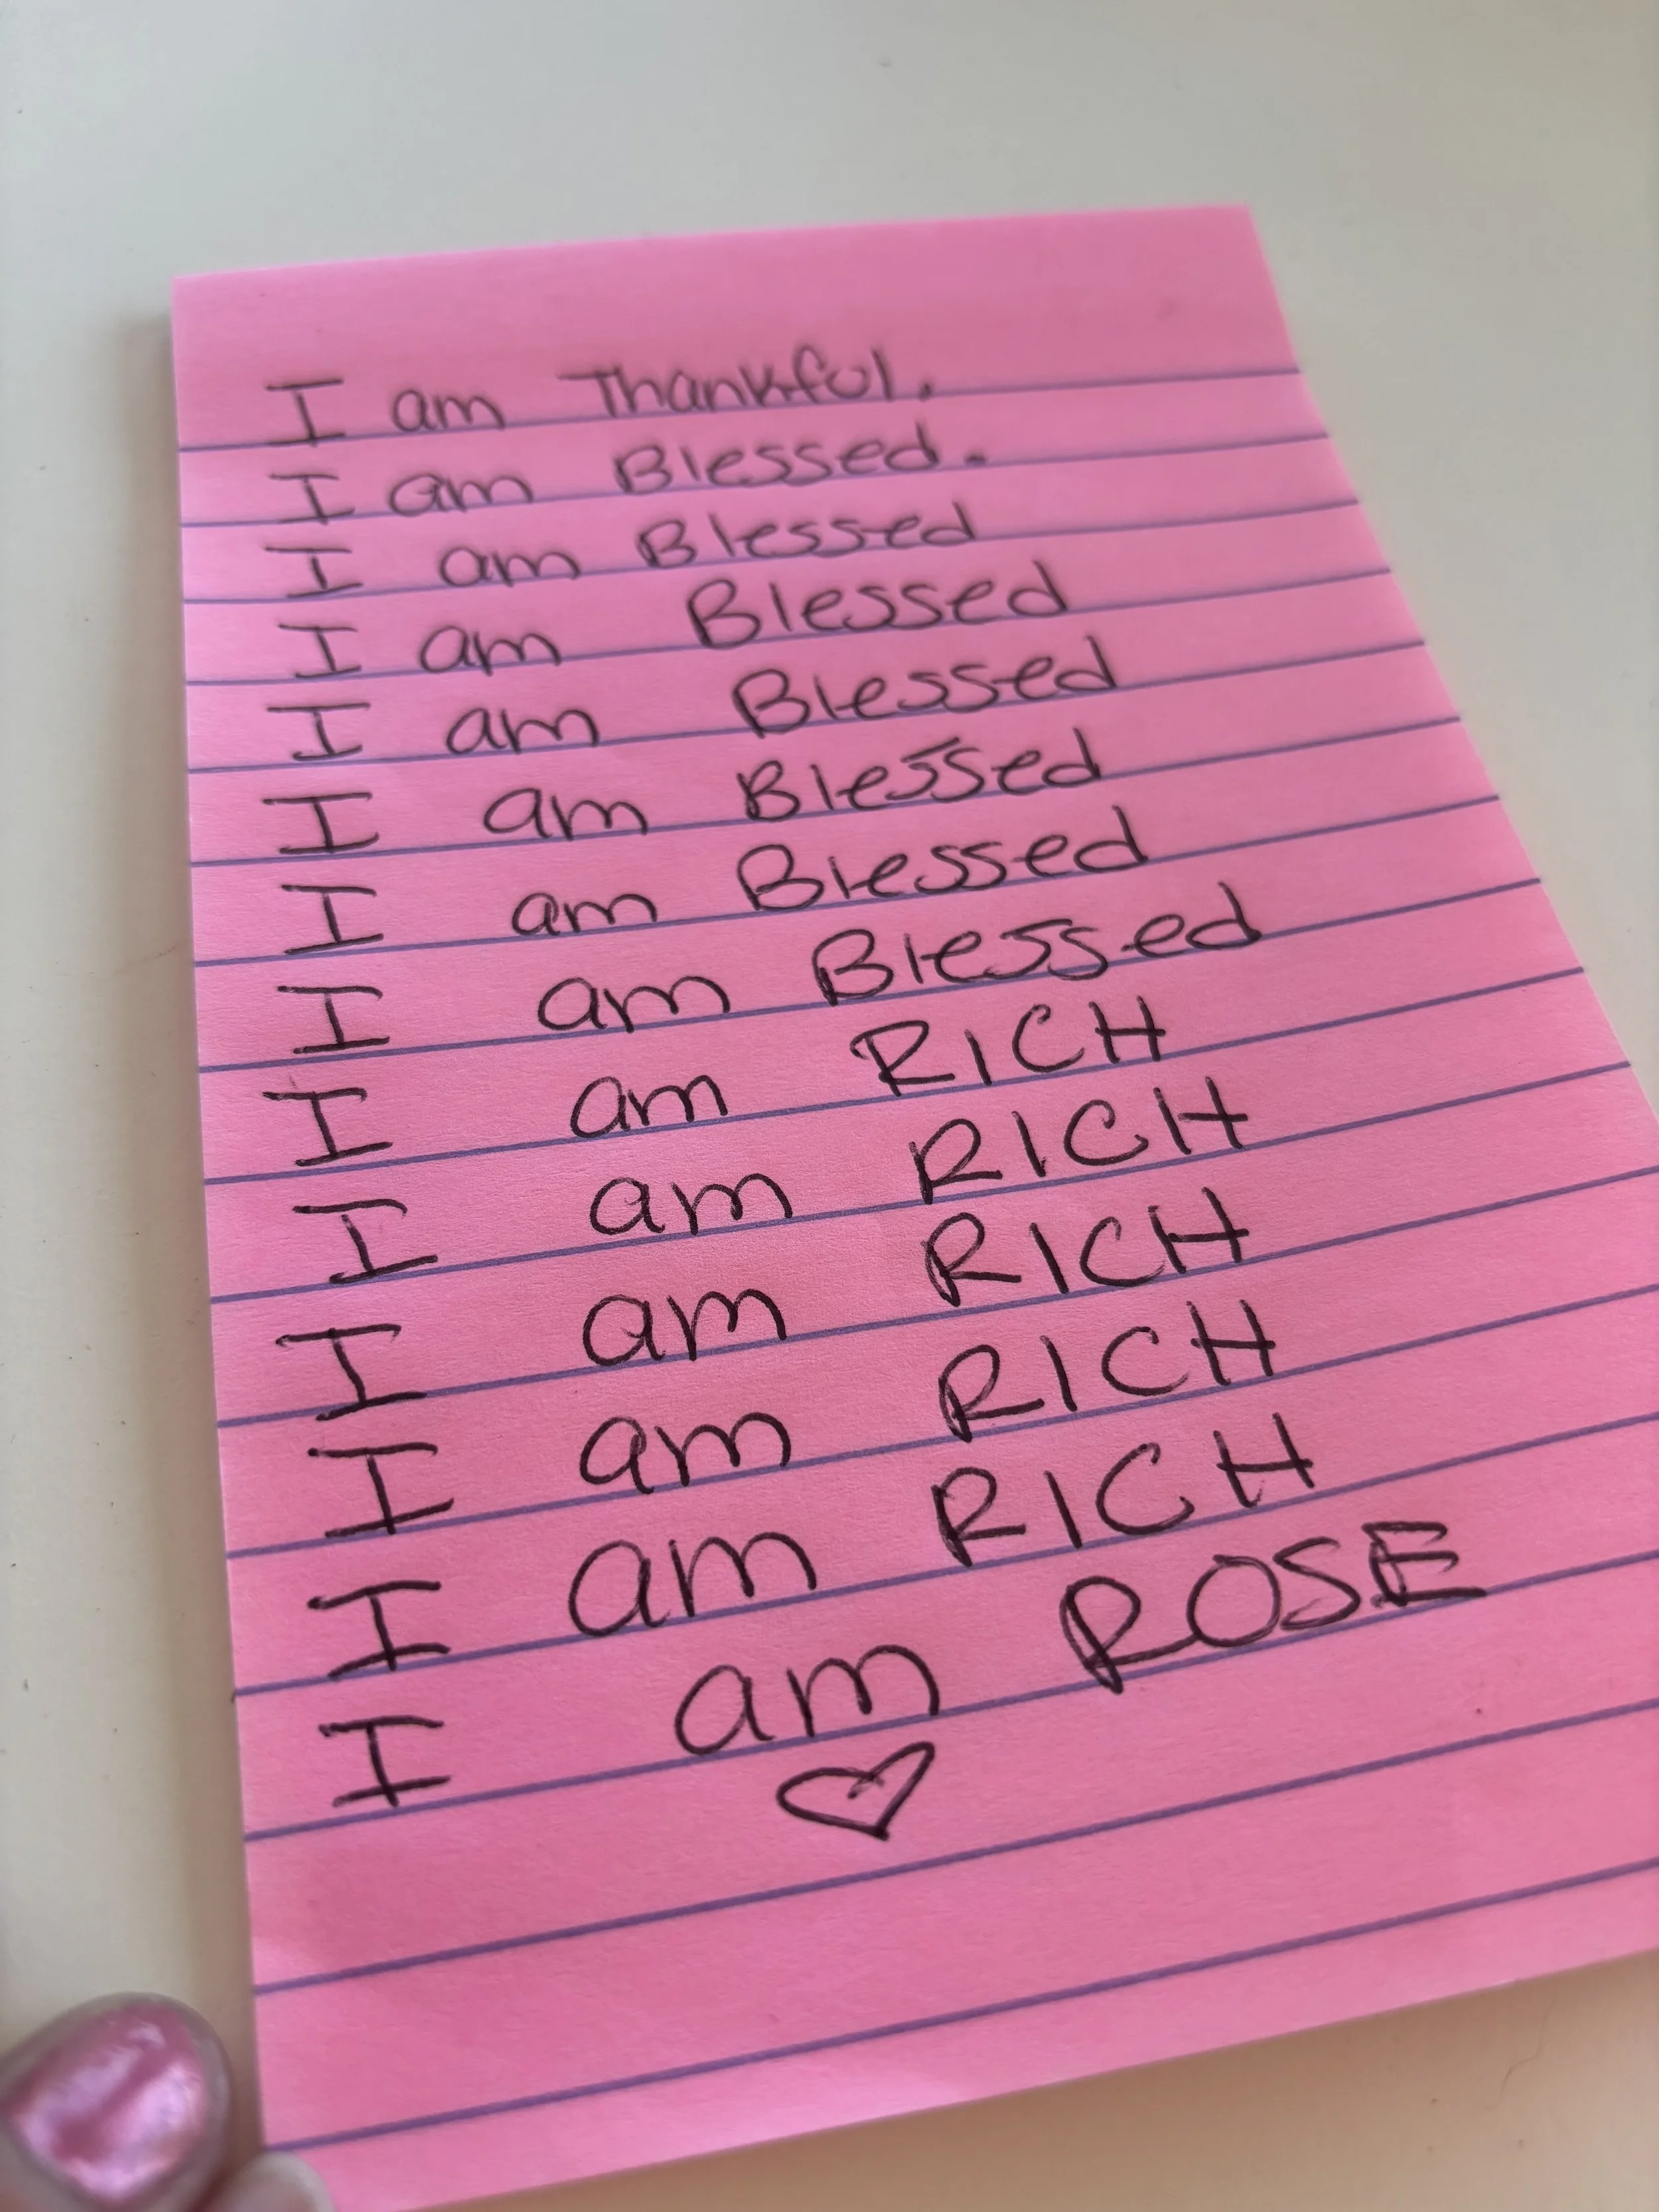 I am Thankful.
I am Blessed.
I am Blessed
I am Blessed
I am Blessed
I am Blessed
I am Blessed
I am Blessed
I am RICH
I am RICH
I am RICH
I am RICH
I am RICH
I am ROSE